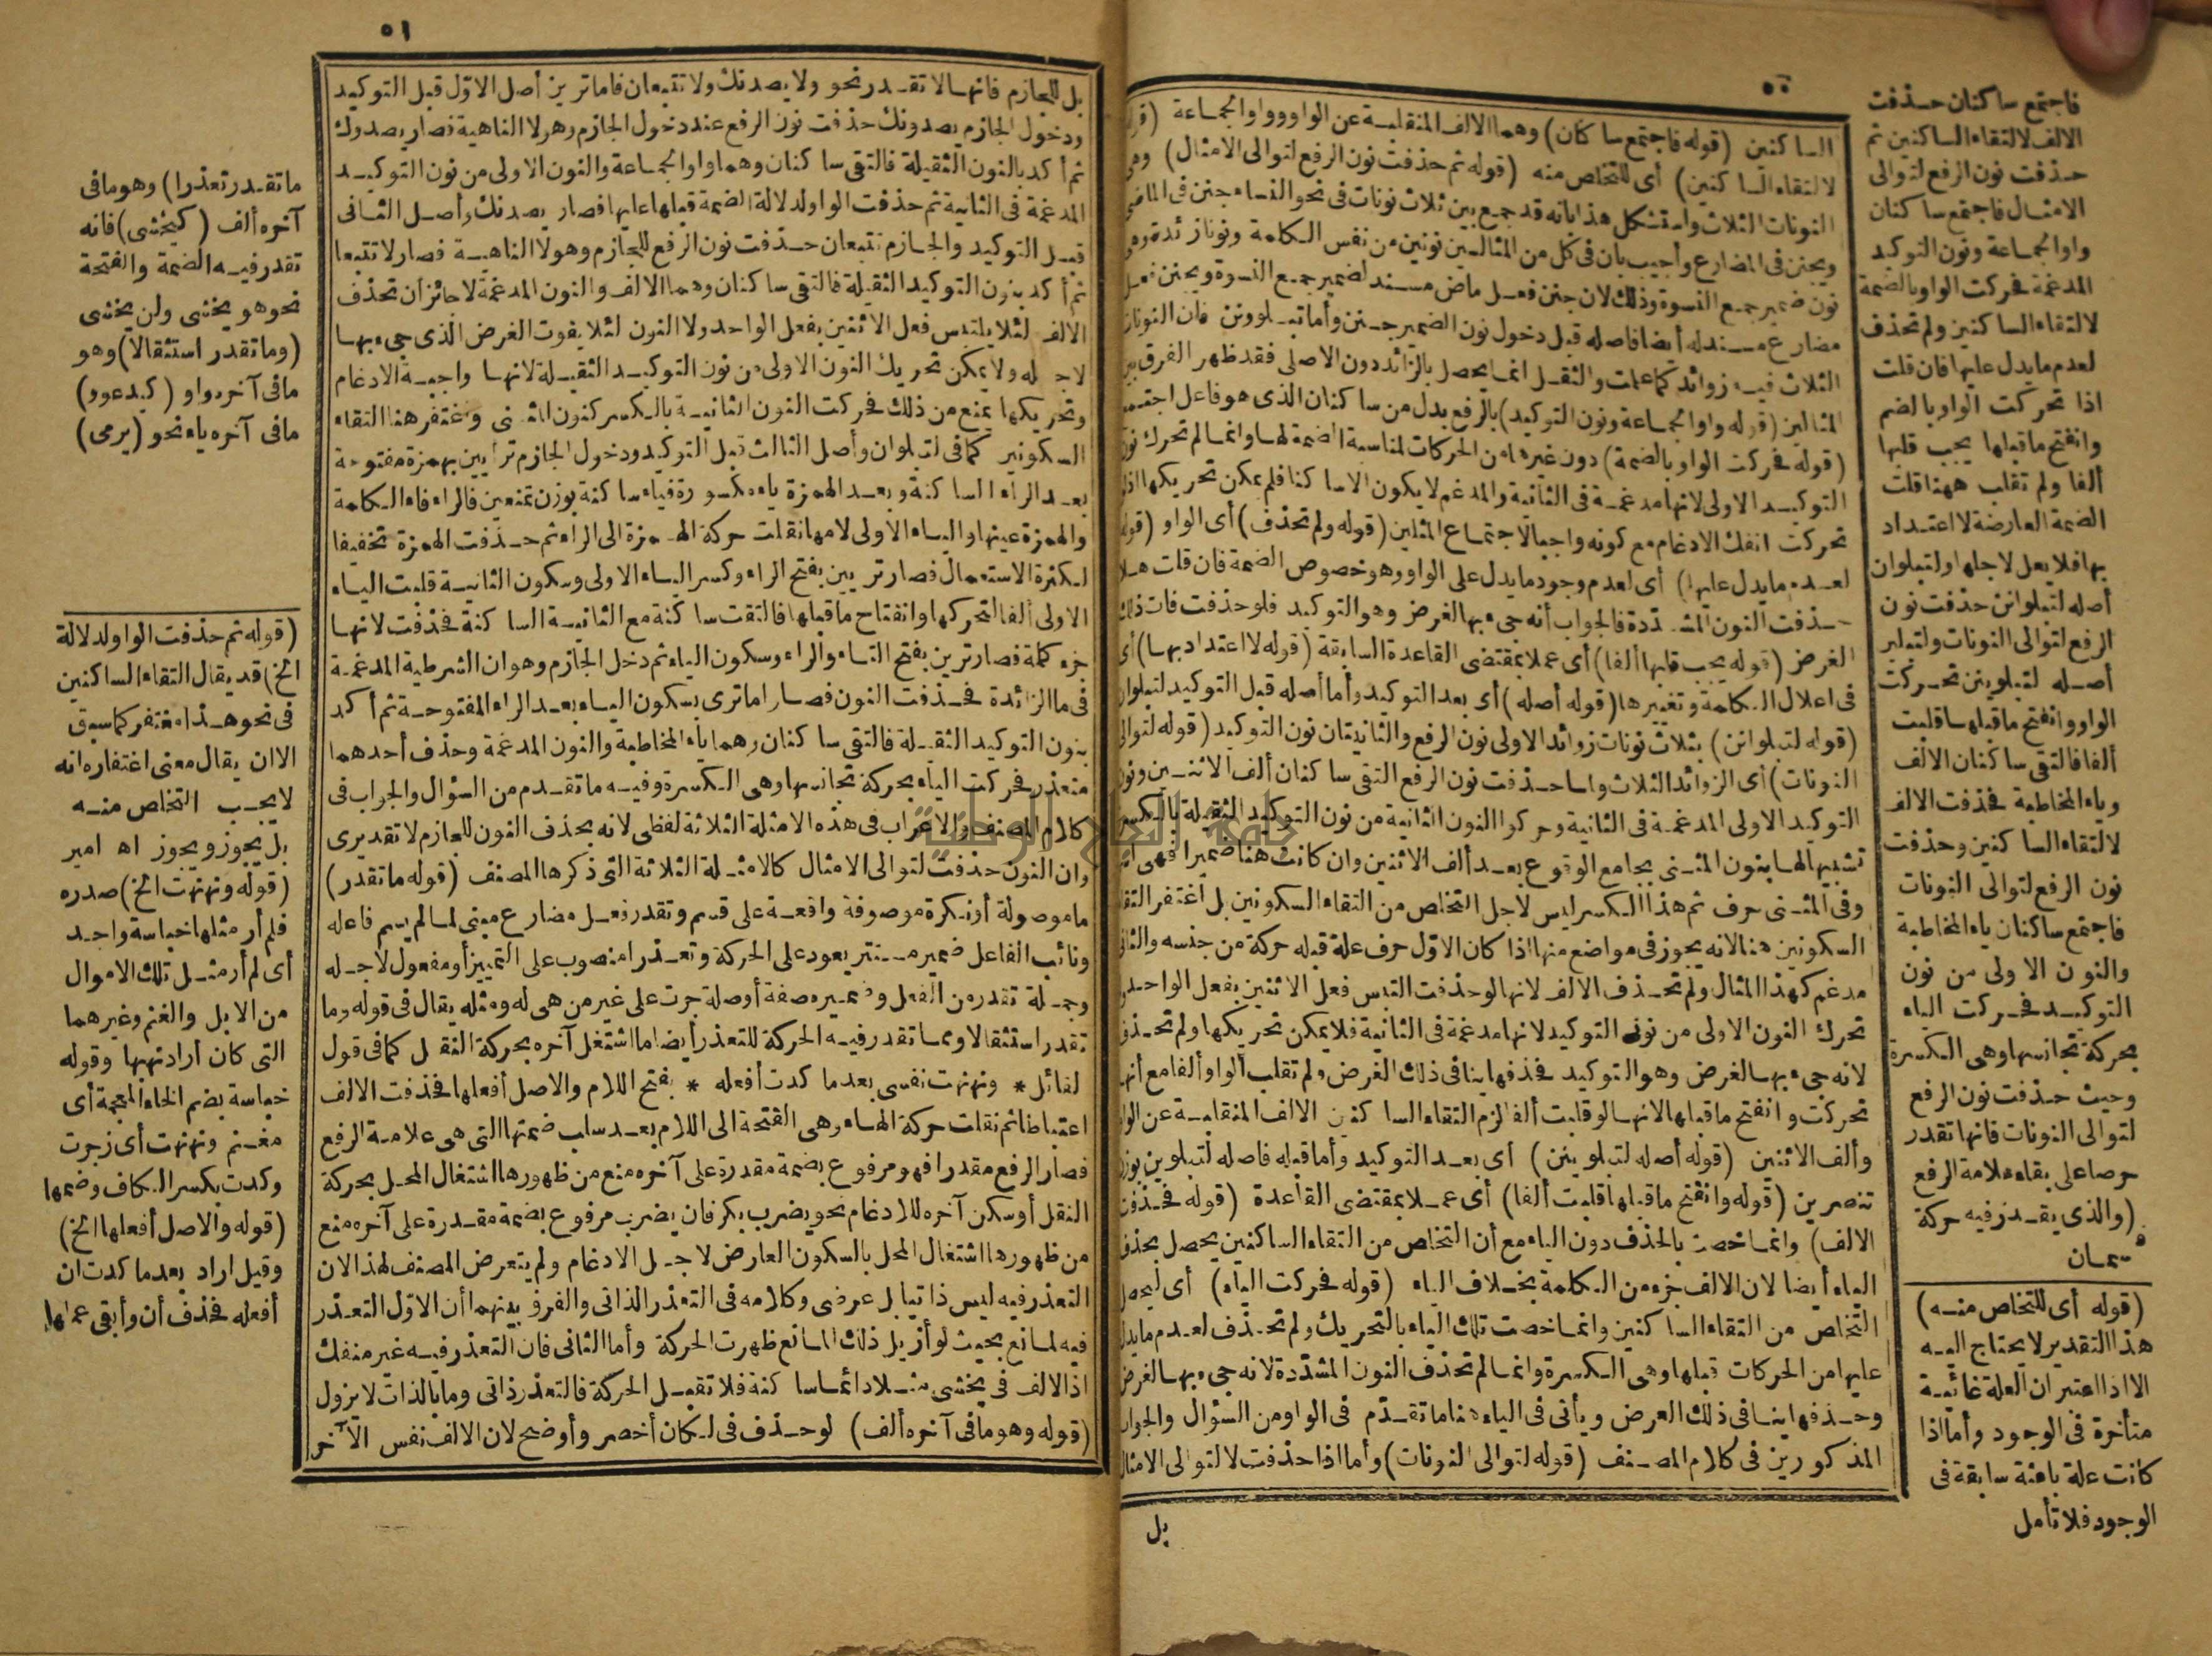 ٥٠
فاجتمع ساكنان حذفت
الالف لالتقاء الساكنين ثم
حذفت نون الرفع لتوالى
الامثال فاجتمع ساكنان
واوالجماعة ونون التوكيد
المدغمة فحركت الواو بالضمة
لالتقاء الساكنين ولم تحذف
لعدم مايدل عليها فان قلت
اذا تحركت الواو بالضم
وانفتح ماقبلها يجب قلبها
ألفا ولم تقلب ههنا قلت
الضمة العارضة لا اعتداد
بها فلا يعل لاجلها ولتبلوان
أصله لتبلوانن حذفت نون
الرفع لتوالى النونات ولتبلين
أصله لتبلوينن تحركت
الواو وانفتح ماقبلها قلبت
ألفا فالتقى ساكنان الالف
وياء المخاطبة فحذفت الالف
لالتقاء الساكنين وحذفت
نون الرفع لتوالى النونات
فاجتمع ساكنان ياء المخاطبة
والنون الاولى من نون
التوكيد فحركت الياء
بحركة تجانسها وهى الكسرة
وحيث حذفت نون الرفع
لتوالى النونات فانها تقدر
حرصا على بقاء علامة الرفع
(والذى يقدر فيه حركة
قسمان
(قوله أى للتخلص منه)
هذا التقدير لا يحتاج اليه
الا اذا اعتبر ان العلة غائية
متأخرة فى الوجود وأما اذا
كانت علة باعثة سابقة فى
الوجود فلا تأمل
الساكنين (قوله فاجتمع ساكان) وهما الالف المنقلبة عن الواو وواو الجماعة (قوله
لالتقاء الساكنين) أى للتخلص منه (قوله ثم حذفت نون الرفع لتوالى الامثال) وهى
النونات الثلاث واستشكل هذا بأنه قد جمع بين ثلاث نونات فى نحو النساء جنن فى الماضى
ويجنن فى المضارع وأجيب بأن فى كل من المثالين نونين من نفس الكلمة ونونا زائدة وهى
نون ضمير جمع النسوة وذلك لان جنن فعل ماض مسند لضمير جمع النسوة ويجنن فعل
مضارع مسند له أيضا فاصله قبل دخول نون الضمير جنن وأما تبلوونن فان النونات
الثلاث فيه زوائد كما علمت والثقل انما يحصل بالزائد دون الاصلى فقد ظهر الفرق بين
المثالين (قوله واو الجماعة ونون التوكيد) بالرفع بدل من ساكنان الذى هو فاعل اجتمع
(قوله فحركت الواو بالضمة) دون غيرها من الحركات لمناسبة الضمة لها وانما لم تحرك نون
التوكيد الاولى لانها مدغمة فى الثانية والمدغم لا يكون الا ساكنا فلم يمكن تحريكها اذ لو
تحركت انفك الادغام مع كونه واجبا لاجتماع المثلين (قوله ولم تحذف) أى الواو (قوله
لعدم مايدل عليها) أى لعدم وجود مايدل على الواو وهو خصوص الضمة فان قلت هلا
حذفت النون المشددة فالجواب أنه جىء بها لغرض وهو التوكيد فلو حذفت فات ذلك
الغرض (قوله يجب قلبها ألفا) أى عملا بمقتضى القاعدة السابقة (قوله لا اعتداد بها) أى
فى اعلال الكلمة وتغييرها (قوله أصله) أى بعد التوكيد وأما أصله قبل التوكيد لتبلوان
(قوله لتبلوانن) بثلاث نونات زوائد الاولى نون الرفع والثانيتان نون التوكيد (قوله لتوالى
النونات) أى الزوائد الثلاث ولما حذفت نون الرفع التقى ساكنان ألف الاثنين ونون
التوكيد الاولى المدغمة فى الثانية وحركوا النون الثانية من نون التوكيد الثقيلة بالكسر
تشبيها لها بنون المثنى بجامع الوقوع بعد ألف الاثنين وان كانت هنا ضميرا فهى اسم
وفى المثنى حرف ثم هذا الكسر ليس لاجل التخلص من التقاء السكونين بل اغتفر التقاء
السكونين هنا لانه يجوز فى مواضع منها اذا كان الاول حرف علة قبله حركة من جنسه والثانى
مدغم كهذا المثال ولم تحذف الالف لانها لو حذفت التبس فعل الاثنين بفعل الواحد ولم
تحرك النون الاولى من نونى التوكيد لانها مدغمة فى الثانية فلا يمكن تحريكها ولم تحذف
لانه جىء بها لغرض وهو التوكيد فحذفها ينافى ذلك الغرض ولم تقلب الواو ألفا مع أنها
تحركت وانفتح ماقبلها لانها لو قلبت ألفا لزم التقاء الساكنين الالف المنقلبة عن الواو
وألف الاثنين (قوله أصله لتبلوينن) أى بعد التوكيد وأما قبله فاصله لتبلوين بوزن
تنصرين (قوله وانفتح ماقبلها قلبت ألفا) أى عملا بمقتضى القاعدة (قوله فحذفت
الالف) وانما خصت بالحذف دون الياء مع أن التخلص من التقاء الساكنين يحصل بحذف
الياء أيضا لان الالف جزء من الكلمة بخلاف الياء (قوله فحركت الياء) أى ليحصل
التخلص من التقاء الساكنين وانما خصت تلك الياء بالتحريك ولم تحذف لعدم مايدل
عليها من الحركات قبلها وهى الكسرة وانما لم تحذف النون المشددة لانه جىء بها لغرض
وحذفها ينافى ذلك الغرض ويأتى فى الياء هنا ما تقدم فى الواو من السؤال والجواب
المذكورين فى كلام المصنف (قوله لتوالى النونات) وأما اذا حذفت لا لتوالى الامثال
بل
٥١
بل للجازم فانها لا تقدر نحو ولا يصدنك ولا تتبعان فاما ترين أصل الاول قبل التوكيد
ودخول الجازم يصدونك حذفت نون الرفع عند دخول الجازم وهو لا الناهية فصار يصدوك
ثم أكد بالنون الثقيلة فالتقى ساكنان وهما واو الجماعة والنون الاولى من نون التوكيد
المدغمة فى الثانية ثم حذفت الواو لدلالة الضمة قبلها عليها فصار يصدنك وأصل الثانى
قبل التوكيد والجازم تتبعان حذفت نون الرفع للجازم وهو لا الناهية فصار لا تتبعا
ثم أكد بنون التوكيد الثقيلة فالتقى ساكنان وهما الالف والنون المدغمة لا جائز أن تحذف
الالف لئلا يلتبس فعل الاثنين بفعل الواحد ولا النون لئلا يفوت الغرض الذى جىء بها
لاجله ولا يمكن تحريك النون الاولى من نون التوكيد الثقيلة لانها واجبة الادغام
وتحريكها يمنع من ذلك فحركت النون الثانية بالكسر كنون المثنى واغتفر هنا التقاء
السكونين كما فى لتبلوان وأصل الثالث قبل التوكيد ودخول الجازم ترأيين بهمزة مفتوحة
بعد الراء الساكنة وبعد الهمزة ياء مكسورة فياء ساكنة بوزن تمنعين فالراء فاء الكلمة
والهمزة عينها والياء الاولى لامها نقلت حركة الهمزة الى الراء ثم حذفت الهمزة تخفيفا
لكثرة الاستعمال فصار تريين بفتح الراء وكسر الياء الاولى وسكون الثانية قلبت الياء
الاولى ألفا لتحركها وانفتاح ماقبلها فالتقت ساكنة مع الثانية الساكنة فحذفت لانها
جزء كلمة فصار ترين بفتح التاء والراء وسكون الياء ثم دخل الجازم وهو ان الشرطية المدغمة
فى ما الزائدة فحذفت النون فصار اما ترى بسكون الياء بعد الراء المفتوحة ثم أكد
بنون التوكيد الثقيلة فالتقى ساكنان وهما ياء المخاطبة والنون المدغمة وحذف أحدهما
متعذر فحركت الياء بحركة تجانسها وهى الكسرة وفيه ما تقدم من السؤال والجواب فى
كلام المصنف والاعراب فى هذه الامثلة الثلاثة لفظى لانه بحذف النون للجازم لا تقديرى
وان النون حذفت لتوالى الامثال كالامثلة الثلاثة التى ذكرها المصنف (قوله ما تقدر)
ما موصولة أو نكرة موصوفة واقعة على قسم وتقدر فعل مضارع مبنى لما لم يسم فاعله
ونائب الفاعل ضمير مستتر يعود على الحركة وتعذرا منصوب على التمييز أو مفعول لاجله
وجملة تقدر من الفعل وضميره صفة أو صلة جرت على غير من هى له ومثله يقال فى قوله وما
تقدر استثقالا ومما تقدر فيه الحركة للتعذر أيضا ما اشتغل آخره بحركة النقل كما فى قول
القائل * ونهنهت نفسى بعد ما كدت أفعله * بفتح اللام والاصل أفعلها فحذفت الالف
اعتباطا ثم نقلت حركة الهاء وهى الفتحة الى اللام بعد سلب ضمتها التى هى علامة الرفع
فصار الرفع مقدرا فهو مرفوع بضمة مقدرة على آخره منع من ظهورها اشتغال المحل بحركة
النقل أو سكن آخره للادغام نحو يضرب بكر فان يضرب مرفوع بضمة مقدرة على آخره منع
من ظهورها اشتغال المحل بالسكون العارض لاجل الادغام ولم يتعرض المصنف لهذا لان
التعذر فيه ليس ذاتيا بل عرضى وكلامه فى التعذر الذاتى والفرق بينهما أن الاول التعذر
فيه لمانع بحيث لو أزيل ذلك المانع ظهرت الحركة وأما الثانى فان التعذر فيه غير منفك
اذ الالف فى يخشى مثلا دائما ساكنة فلا تقبل الحركة فالتعذر ذاتى وما بالذات لا يزول
(قوله وهو ما فى آخره ألف) لو حذف فى لكان أخصر وأوضح لان الالف نفس الآخر
ما تقدر تعذرا) وهو ما فى
آخره ألف (كيخشى) فانه
تقدر فيه الضمة والفتحة
نحو هو يخشى ولن يخشى
(وما تقدر استثقالا) وهو
ما فى آخره واو (كيدعو و)
ما فى آخره ياء نحو (يرمى)
(قوله ثم حذفت الواو لدلالة
الخ) قد يقال التقاء الساكنين
فى نحو هذا مغتفر كما سبق
الا ان يقال معنى اغتفاره انه
لا يجب التخلص منه
بل يجوز ويجوز اه امير
(قوله ونهنهت الخ) صدره
فلم أر مثلها خباسة واجد
أى لم أر مثل تلك الاموال
من الابل والغنم وغيرهما
التى كان أراد نهبها وقوله
خباسة بضم الخاء المعجمة أى
مغنم ونهنهت أى زجرت
وكدت بكسر الكاف وضمها
(قوله والاصل أفعلها الخ)
وقيل اراد بعدما كدت ان
أفعله فحذف أن وأبقى عملها